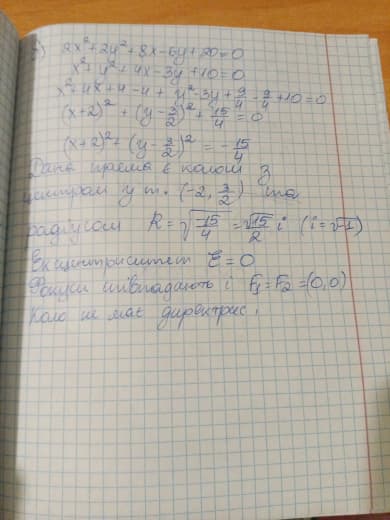 2x²+2y²+8x-6y+20=0
x²+y²+4x-3y+10=0
x²+4x+4-4+y²-3y+9/4-9/4+10=0
(x+2)²+(y-3/2)²+15/4=0
(x+2)²+(y-3/2)²=-15/4
Дана крива є колом з
центром у т. (-2, 3/2) та
радіусом R=√(-15/4)=√15/2 i (i=√-1)
Ексцентриситет ε=0
Фокуси співпадають і F₁=F₂=(0,0)
Коло не має директрис.